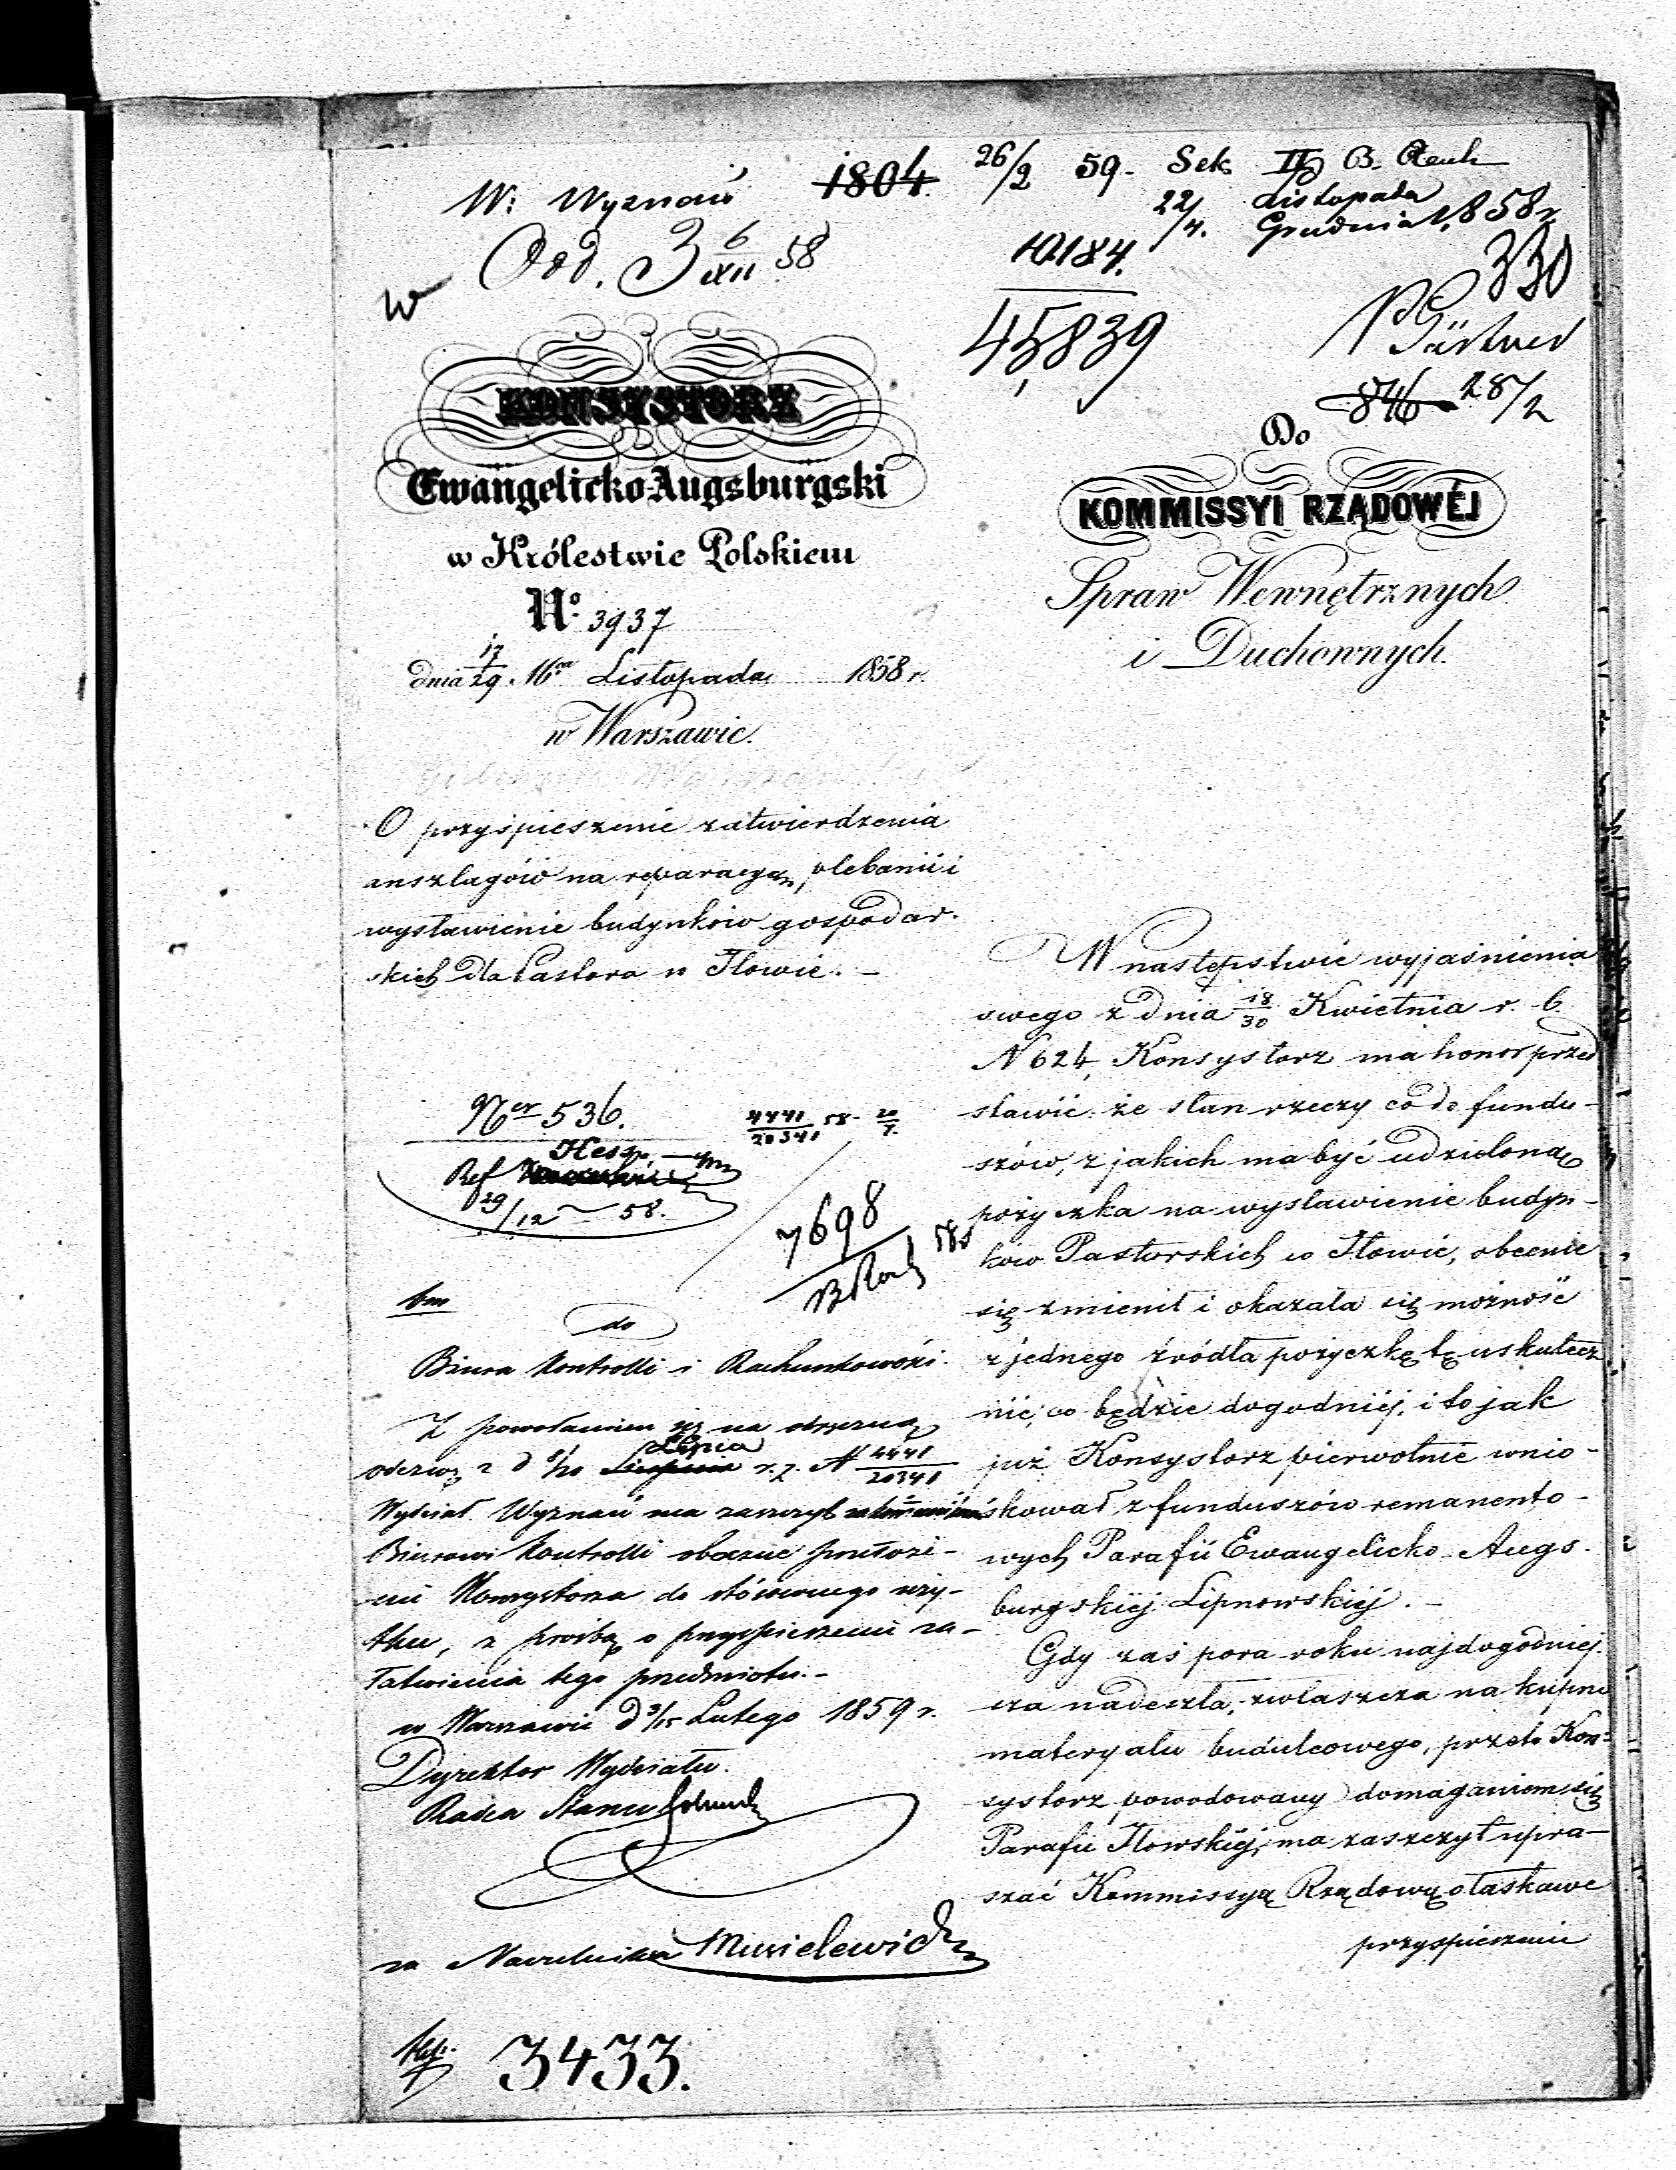 W: Wyznań
1804.
26/2 59. Sek II B. Rach
22/4. Listopada Grudnia 1858 r
Odd. 3 6/XII 58
10184.
330
w
45839
Gärtner
846 28/2
KONSYSTORZ
Ewangelicko-Augsburgski
w Królestwie Polskiem
No. 3937
dnia 17/29. Listopada 1858 r.
w Warszawie.
O przyśpieszenie zatwierdzenia
anszlagów na reparacyą plebanii i
wystawienie budynków gospodar-
skich dla Pastora w Iłowie. –
Ner 536.
4441/20341 58
Ref
29/12 – 58.
7698
B Rach 58
do
Biura Kontrolli i Rachunkowości.
Z powołaniem się na odezwę z d 8/20 Lipca r. z. N 4441/20341
Wydział Wyznań ma zaszczyt
Biurowi Kontrolli obecne przełoże-
nie Konsystorza do stósownego uży-
tku, z prośbą o przyspieszenie za-
łatwienia tego przedmiotu. –
w Warszawie d 3/15 Lutego 1859 r.
Dyrektor Wydziału.
Radca Stanu
za Naczelnika
3433.
Do
KOMMISSYI RZĄDOWÉJ
Spraw Wewnętrznych
i Duchownych.
W następstwie wyjaśnienia
swego z dnia 18/30 Kwietnia r. b.
N 624, Konsystorz ma honor przed
stawić że stan rzeczy co do fundu-
szów, z jakich ma być udzieloną
pożyczka na wystawienie budyn-
ków Pastorskich w Iłowie, obecnie
się zmienił i okazała się możność
z jednego źródła pożyczkę tę uskutecz
nić, co będzie dogodniéj, i to jak
już Konsystorz pierwotnie wnio-
skował z funduszów remanento-
wych Parafii Ewangelicko-Augs-
burgskiéj Lipnowskiéj. –
Gdy zaś pora roku najdogodniej-
sza nadeszła, zwłaszcza na kupno
materyału budulcowego, przeto Kon-
systorz powodowany domaganiem się
Parafii Iłowskiéj, ma zaszczyt upra-
szać Kommissyą Rządową o łaskawe
przyspieszenie